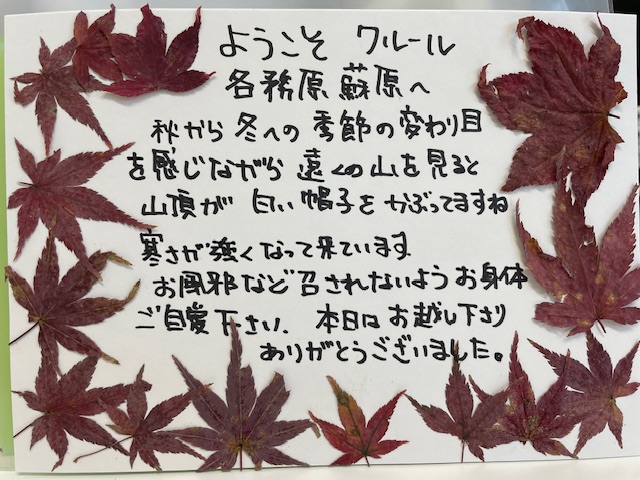 ようこそ クルール
各務原蘇原へ
秋から冬への季節の変わり目
を感じながら遠くの山を見ると
山頂が白い帽子をかぶってますね
寒さが強くなって来ています
お風邪など召されないようお身体
ご自愛下さい、本日はお越し下さり
ありがとうございました。